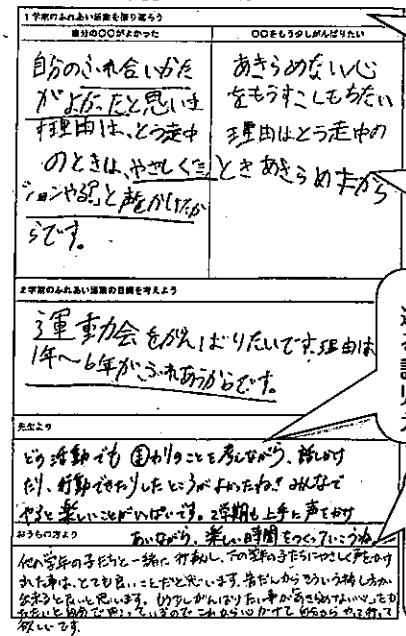 1学期のふれあい活動を振り返ろう
自分の〇〇がよかった
自分のふれ合いかた
がよかったと思いま
す理由は、とう走中
のときは、やさしく「ミ
ションやる?」と声をかけたか
らです。
〇〇をもう少しがんばりたい
あきらめない心
をもうすこしもちたい
理由はとう走中の
ときあきらめたから
2学期のふれあい活動の目標を考えよう
運動会をがんばりたいです。理由は
1年〜6年がふれあうからです。
先生より
どの活動でも周りのことを考えながら、話しかけ
たり、行動できたりしたところがよかったね。みんなで
やると楽しいことがいっぱいです。2学期も上手に声をかけ
あいながら、楽しい時間をつくっていこうね
おうちの方より
他の学年の子たちと一緒に行動し、下の学年の子たちにやさしく声をかけ
れた事は、とても良いことだと思います。普段からそういう接し方が
出来ると良いと思います。もう少しがんばりたい事が"あきらめない心"をもち
たいと自分で思っているのでこれから心がけて自分からやって行って
欲しいです。